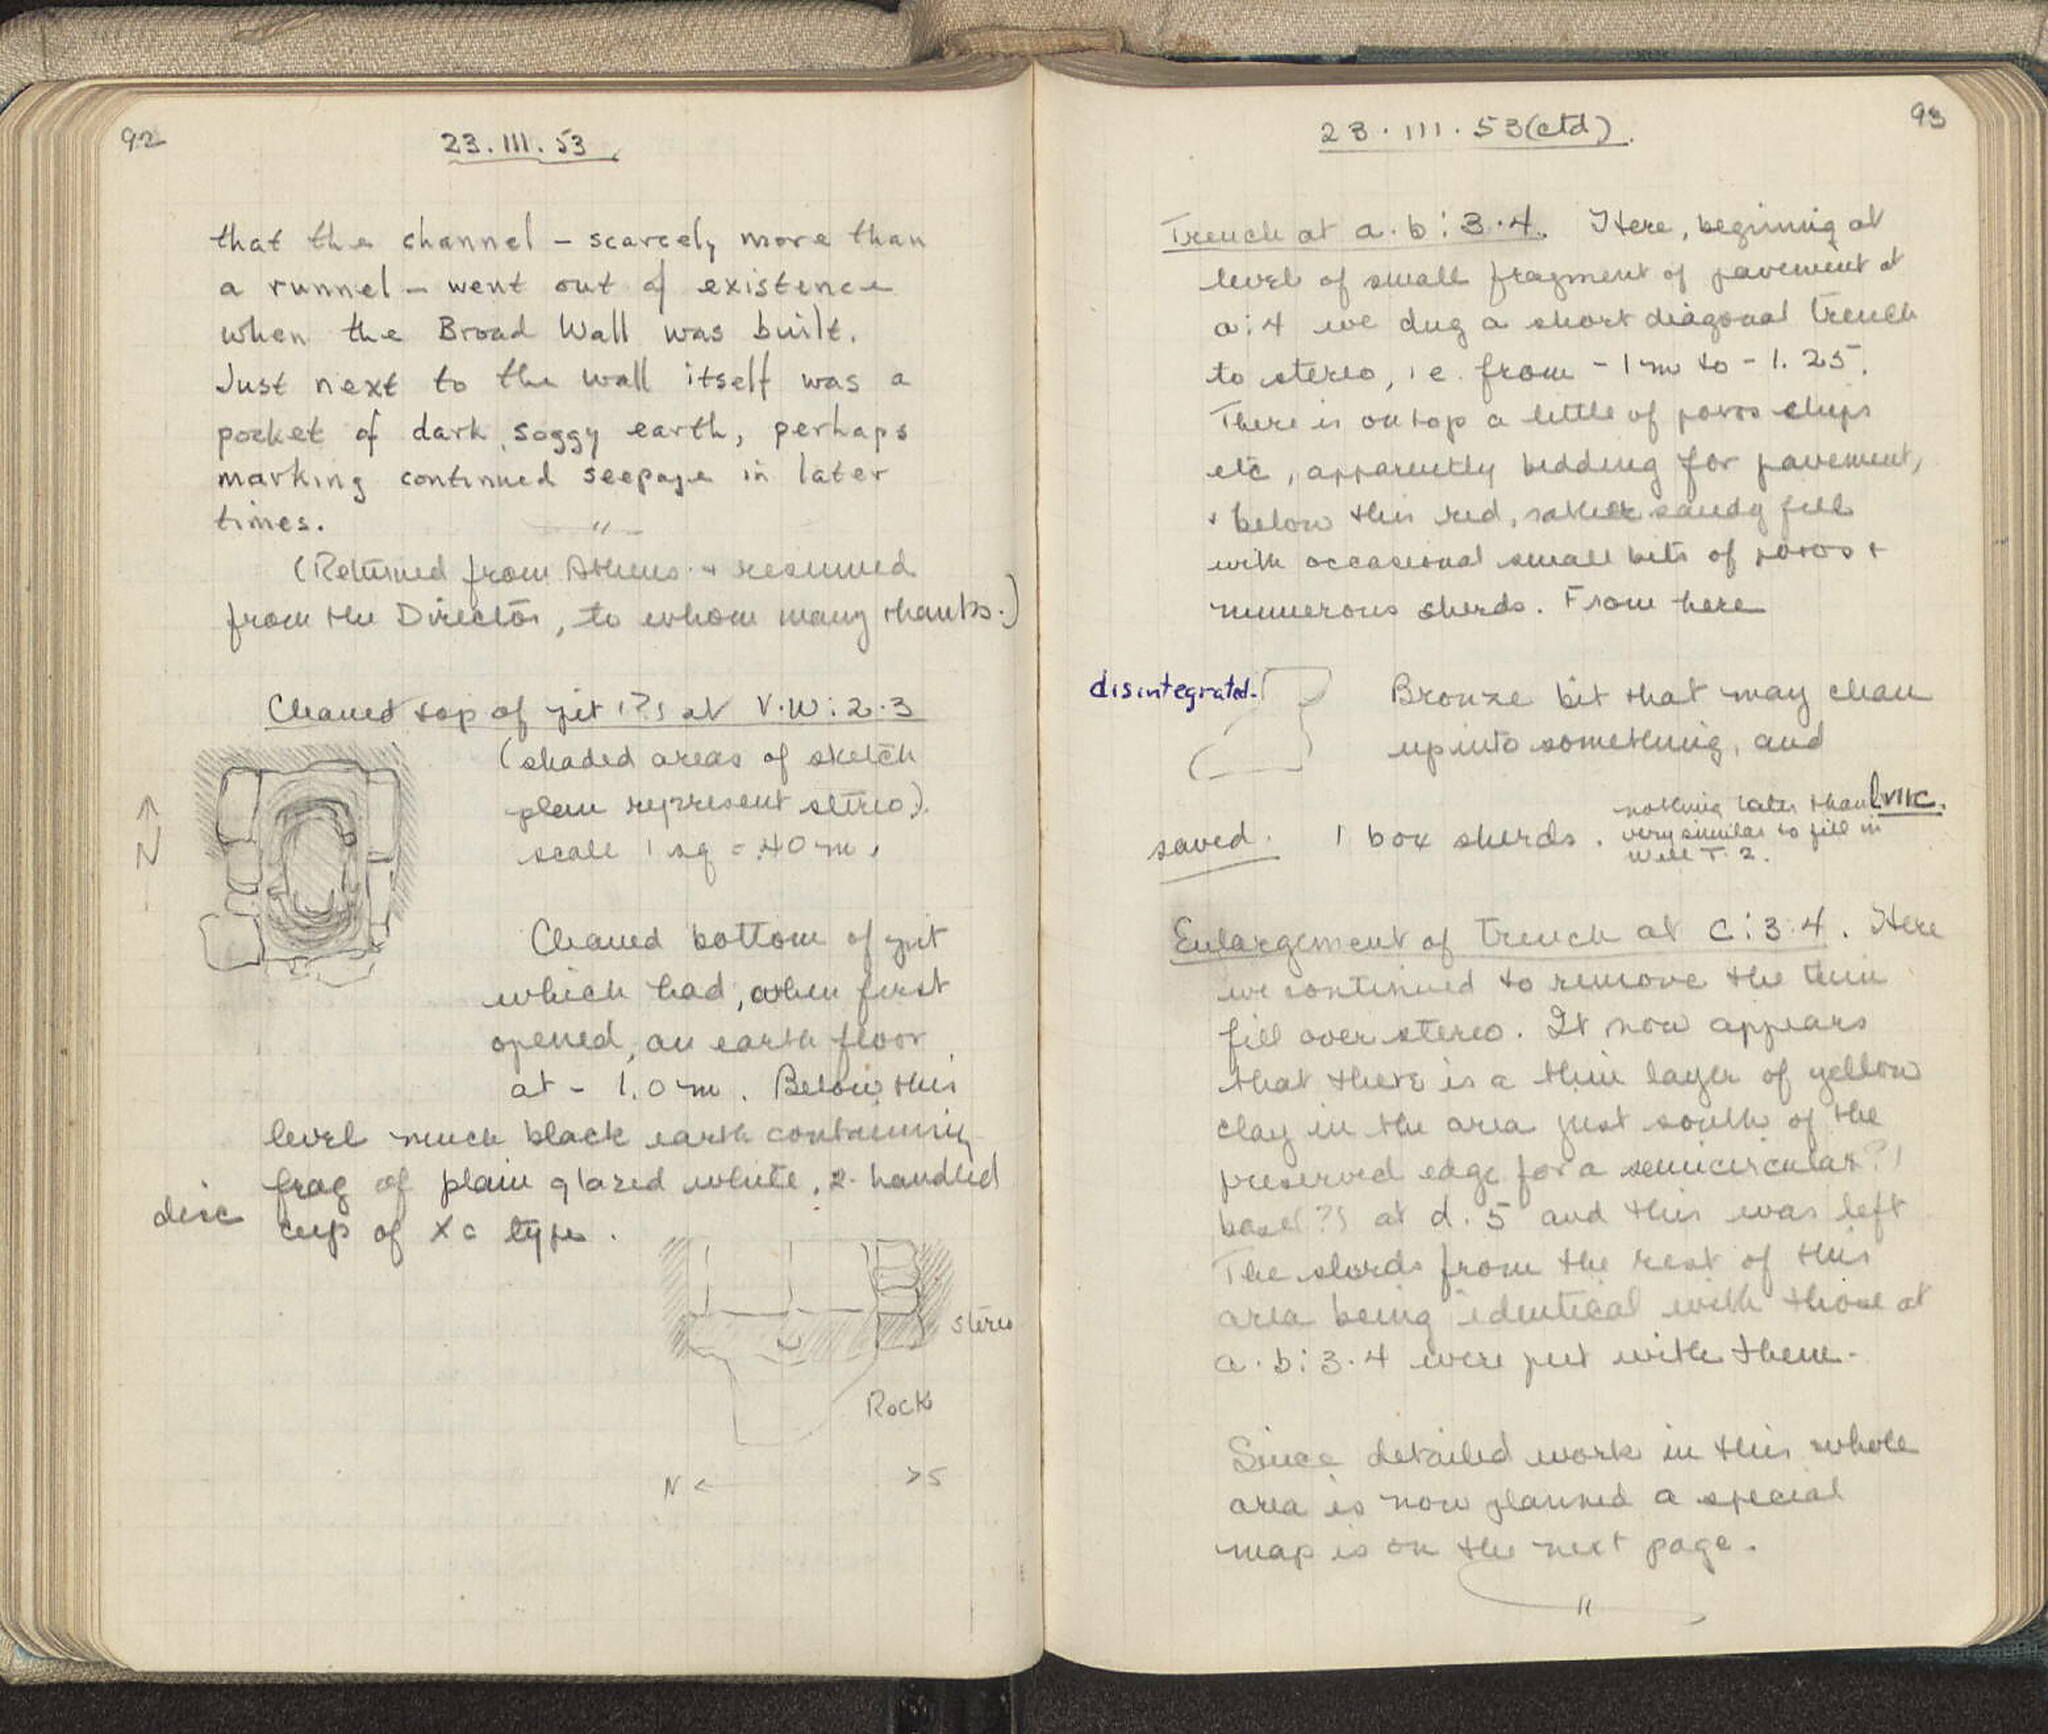 92
23.III.53
that the channel – scarcely more than
a runnel – went out of existence
when the Broad Wall was built.
Just next to the wall itself was a
pocket of dark, soggy earth, perhaps
marking continued seepage in later
times.
"
(Returned from Athens + resumed
from the Director, to whom many thanks.)
Cleaned top of pit (?) at V·W:2·3
(shaded areas of sketch
plan represent stereo).
scale 1 sq = .40 m.
N
Cleaned bottom of pit
which had, when first
opened, an earth floor
at – 1.0 m. Below this
level much black earth containing
frag of plain glazed white, 2-handled
disc cup of Xc type.
stereo
Rock
N < >S
93
23.III.53(ctd).
Trench at a·b:3·4. Here, beginning at
level of small fragment of pavement at
a:4 we dug a short diagonal trench
to stereo, ie. from – 1m to – 1.25.
There is on top a little of poros chips
etc, apparently bedding for pavement,
+ below this red, rather sandy fill
with occasional small bits of poros +
numerous sherds. From here
disintegrated. Bronze bit that may clean
up into something, and
saved. 1 box sherds. nothing later than LVIIC.
very similar to fill in
Well T·2.
Enlargement of trench at c:3·4. Here
we continued to remove the thin
fill over stereo. It now appears
that there is a thin layer of yellow
clay in the area just south of the
preserved edge for a semicircular(?)
base(?) at d.5 and this was left
The sherds from the rest of this
area being identical with those at
a·b:3·4 were put with them.
Since detailed work in this whole
area is now planned a special
map is on the next page.
"